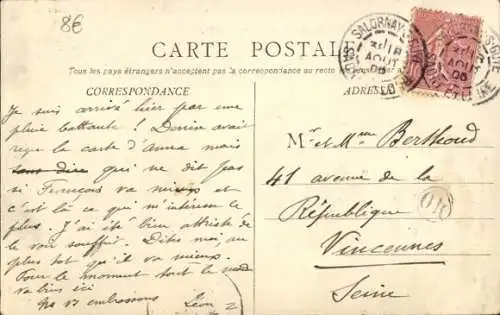 8€
CARTE POSTALE
Tous les pays étrangers n'acceptent pas la correspondance au recto
CORRESPONDANCE
ADRESSE
SALORNAY
AOUT
Je suis arrivé hier par une
pluie battante ! Dorien avait
reçu la carte d'Anna mais
sans dire qui ne dit pas
si François va mieux et
c'est là ce qui m'intéresse le
plus. J'ai été bien attristé de
le voir souffrir. Dites moi au
plus tôt qu'il va mieux.
Pour le moment tout le monde
va bien ici
vs embrassons Léon
Mr et Mme Berthoud
41 avenue de la
République
Vincennes
Seine